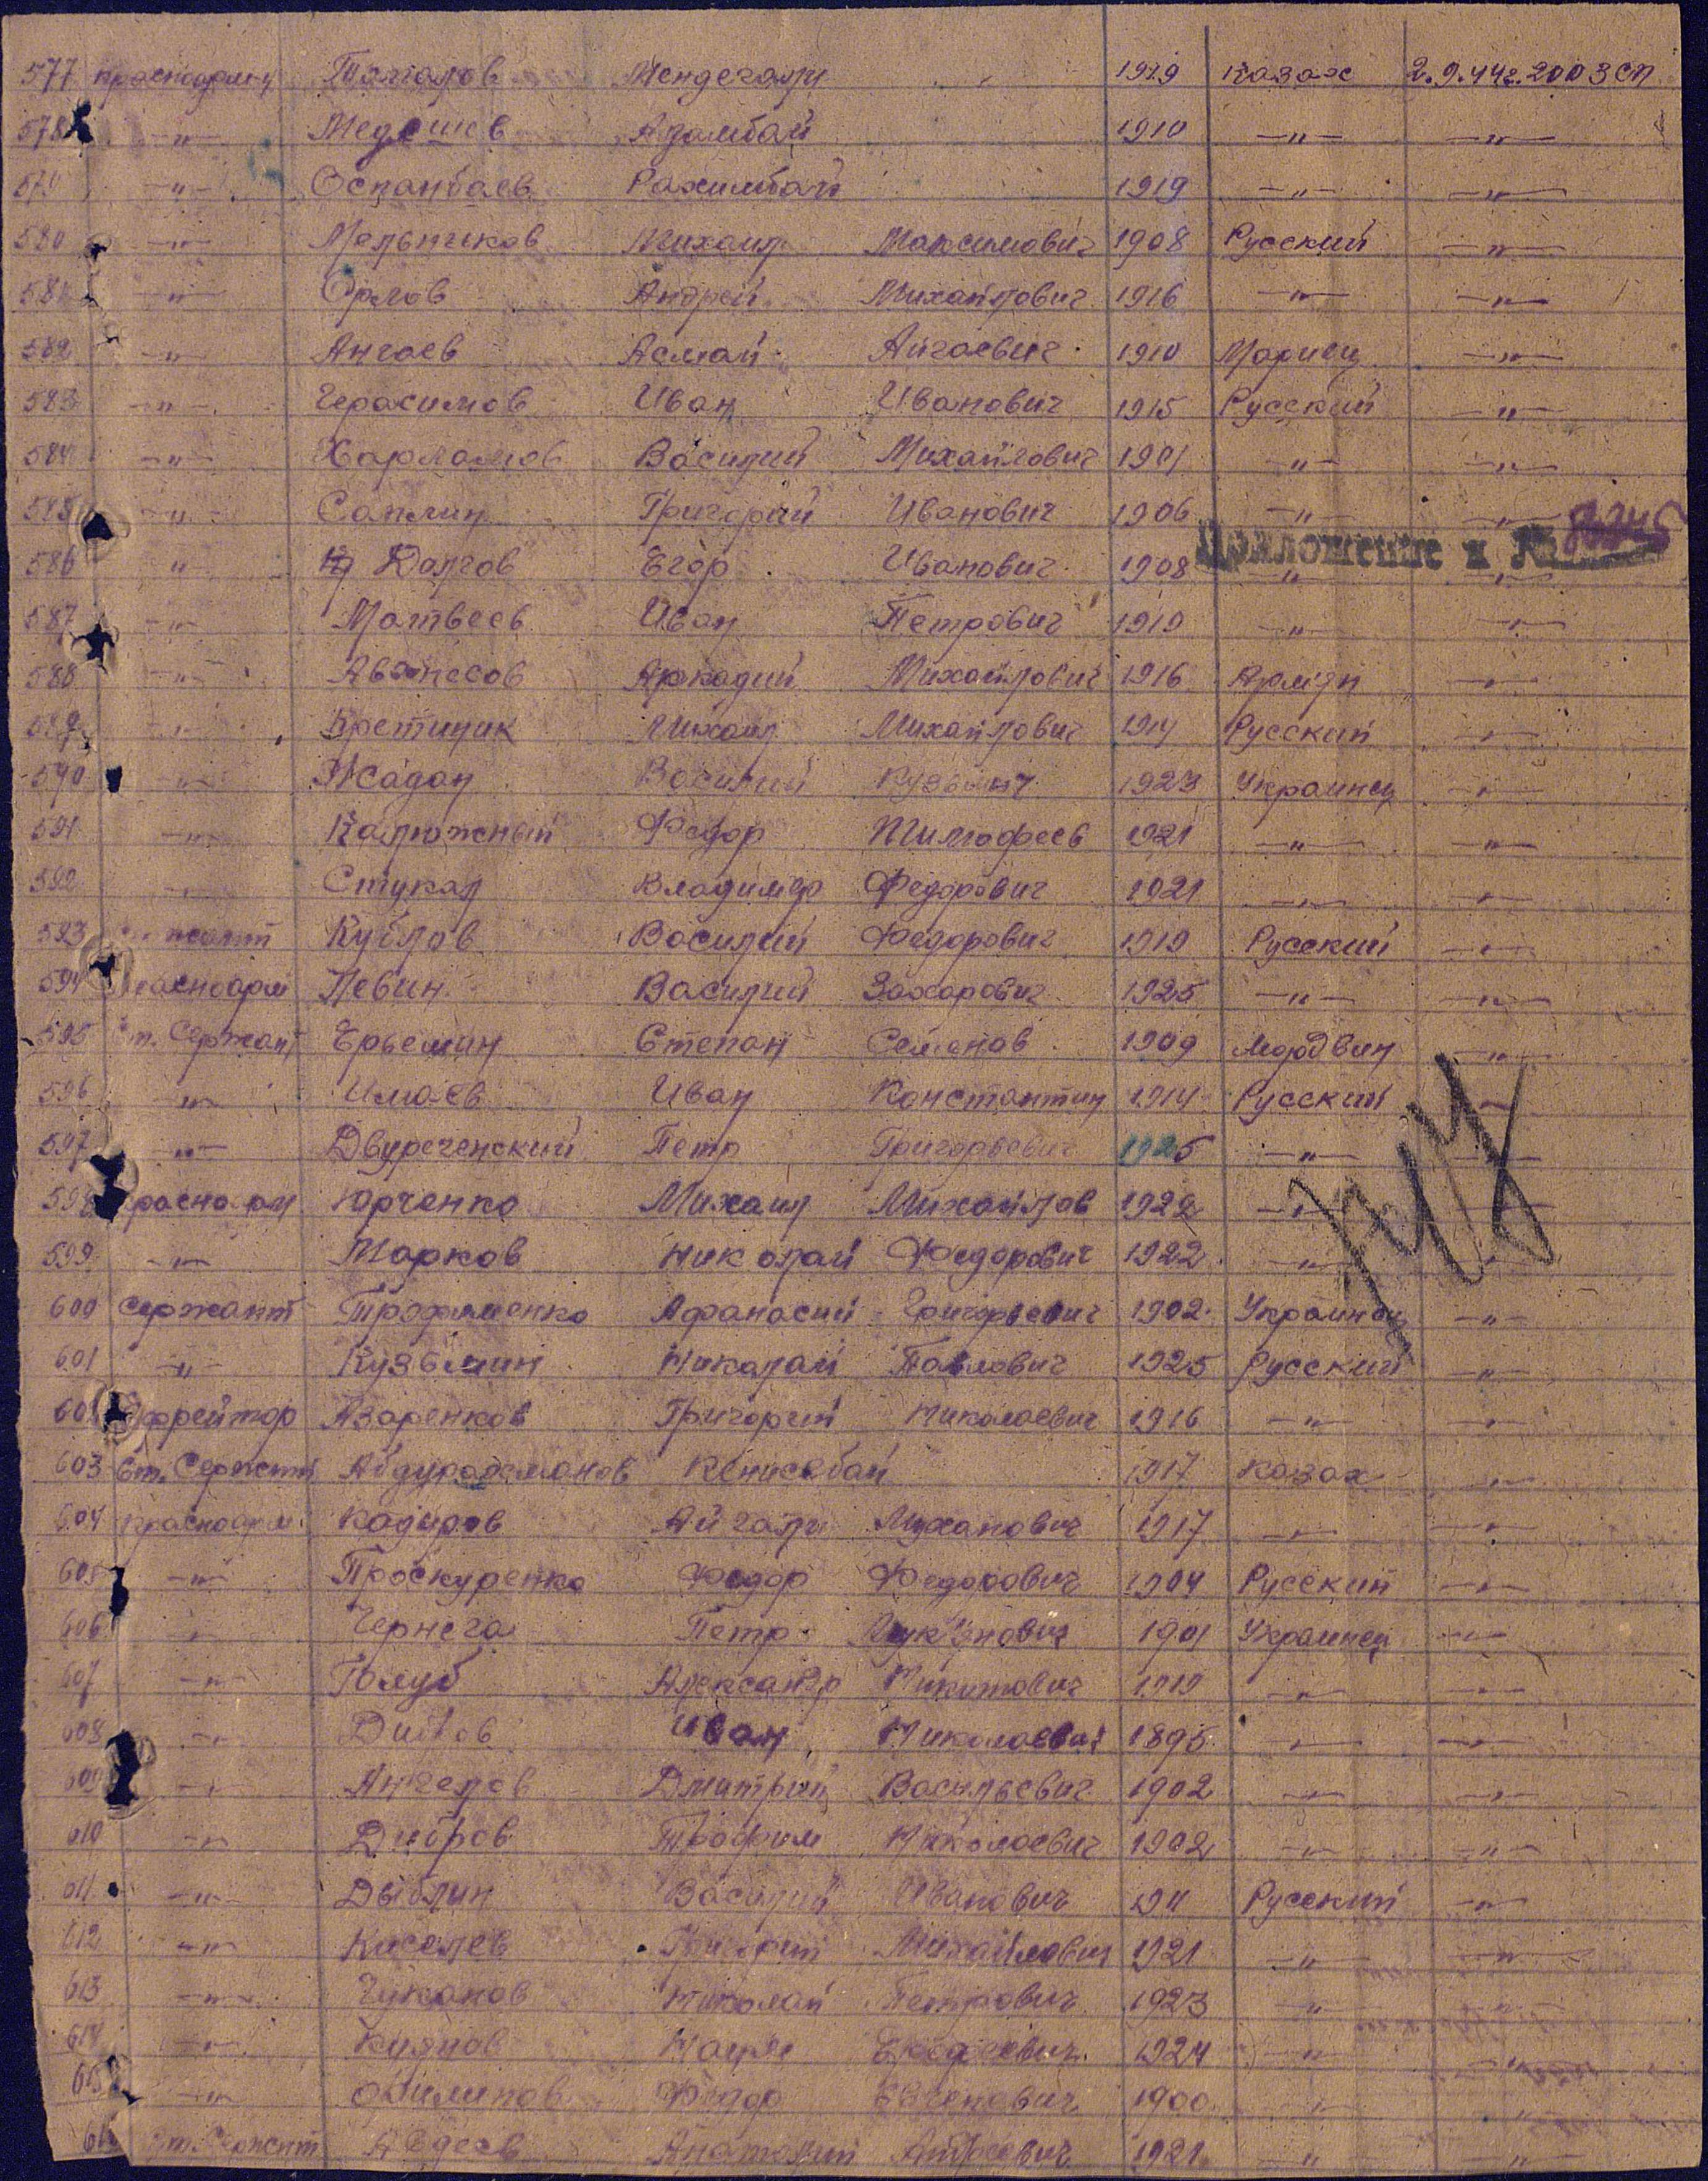 577 красноармец Тягаров Мендегали 1919 казах 2.9.44г. 200 ЗСП
578 —"— Медешев Адамбай 1910 —"— —"—
579 —"— Оспанбаев Рахимбай 1919 —"— —"—
580 —"— Мельников Михаил Максимович 1908 Русский —"—
581 —"— Орлов Андрей Михайлович 1916 —"— —"—
582 —"— Ангаев Асмай Айгаевич 1910 Мариец —"—
583 —"— Герасимов Иван Иванович 1915 Русский —"—
584 —"— Харламов Василий Михайлович 1901 —"— —"—
585 —"— Саплин Григорий Иванович 1906 —"— —"—
Приложение к №
586 —"— Долгов Егор Иванович 1908 —"— —"—
587 —"— Матвеев Иван Петрович 1919 —"— —"—
588 —"— Аванесов Аркадий Михайлович 1916 Армян —"—
589 —"— Кретиник Михаил Михайлович 1914 Русский —"—
590 —"— Жадан Василий Кузьмич 1923 Украинец —"—
591 —"— Калюжный Федор Тимофеев 1921 —"— —"—
592 —"— Стукал Владимир Федорович 1921 —"— —"—
593 сержант Кублов Василий Федорович 1919 Русский —"—
594 Красноарм Левин Василий Захарович 1925 —"— —"—
595 Ст. Сержант Ерьемин Степан Семенов 1909 Мордвин —"—
596 —"— Имаев Иван Константин 1914 Русский —"—
597 —"— Двуреченский Петр Григорьевич 1925 —"— —"—
598 Красноарм Юрченко Михаил Михайлов 1922 —"— —"—
599 —"— Марков Николай Федорович 1922 —"— —"—
600 Сержант Трофименко Афанасий Григорьевич 1902 Украинец —"—
601 —"— Кузьмин Николай Павлович 1925 Русский —"—
602 Ефрейтор Азаренков Григорий Николаевич 1916 —"— —"—
603 Ст. Сержант Абдурахманов Кенисебай 1917 Казах —"—
604 Красноарм Кадиров Айгали Муханович 1917 —"— —"—
605 —"— Проскуренко Федор Федорович 1904 Русский —"—
606 —"— Чернега Петр Лукʼянович 1901 Украинец —"—
607 —"— Голуб Александр Никитович 1919 —"— —"—
608 —"— Иван Николаевич 1895 —"— —"—
609 —"— Ангелов Дмитрий Васильевич 1902 —"— —"—
610 —"— Дибров Трофим Николаевич 1902 —"— —"—
611 —"— Дыблин Василий Иванович 1911 Русский —"—
612 —"— Киселев Григорий Михайлович 1921 —"— —"—
613 —"— Чуканов Николай Петрович 1923 —"— —"—
614 —"— Куянов Наум Ерофеевич 1924 —"— —"—
615 —"— Филипов Федор Евгенович 1900 —"— —"—
616 Ст. Сержант Авдеев Анатолий Андреевич 1921 —"— —"—